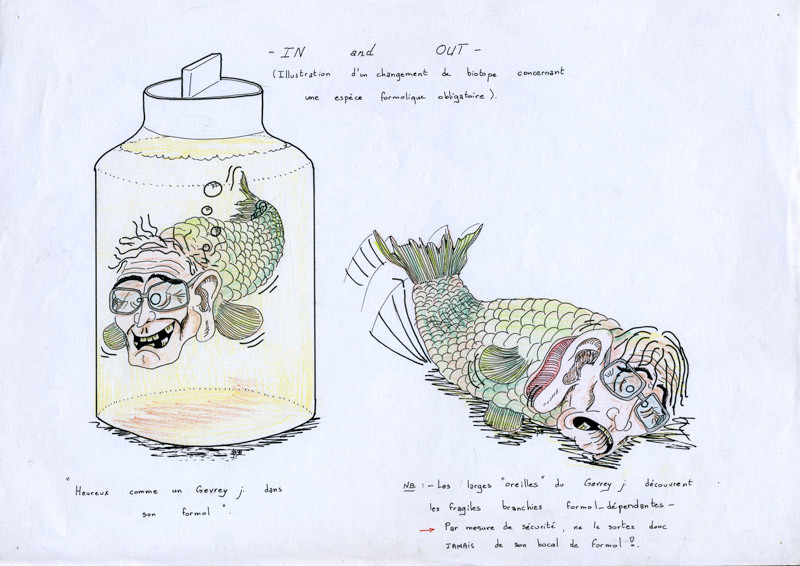 - IN and OUT -
(Illustration d'un changement de biotope concernant
une espèce formolique obligatoire).
"Heureux comme un Gevrey j. dans
son formol".
NB : - Les larges "oreilles" du Gevrey j. découvrent
les fragiles branchies formol-dépendantes -
→ Par mesure de sécurité, ne le sortez donc
JAMAIS de son bocal de formol !!.